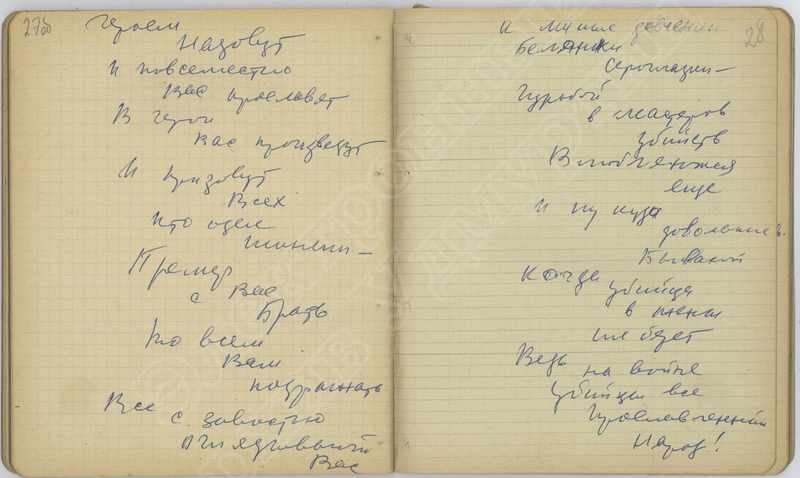 27об
героем
Назовут
И повсеместно
Вас прославят
В герои
Вас произведут
И призовут
Всех
Кто одел
шинели —
Пример
с Вас
Брать
Во всем
Вам
подражать
Все с завистью
Вас
28
И милые девченки
Белянки
Гурьбой
в мастеров
убийств
Влюбляются
еще
И ну куда
довольные
Бывают
Когда
убийца
в жены
их берет
Ведь на войне
убийцы все
Прославленный
Народ!